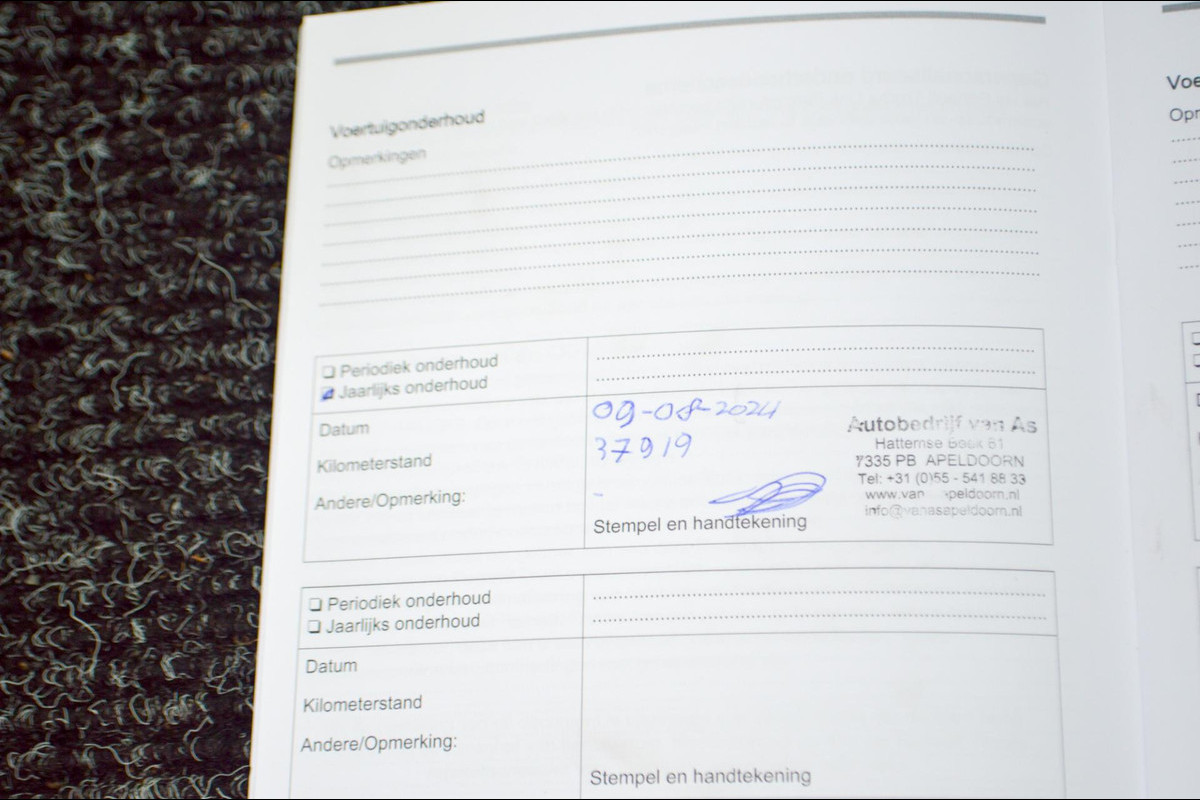 Voertuigonderhoud
Opmerkingen
Voe
Opr
❏ Periodiek onderhoud
❏ Jaarlijks onderhoud
Datum
09-08-2024
Kilometerstand
37919
Andere/Opmerking:
-
Stempel en handtekening
Autobedrijf van As
Hattemse 81
7335 PB APELDOORN
Tel: +31 (0)55 - 541 88 33
info@vanasapeldoorn.nl
❏ Periodiek onderhoud
❏ Jaarlijks onderhoud
Datum
Kilometerstand
Andere/Opmerking:
Stempel en handtekening